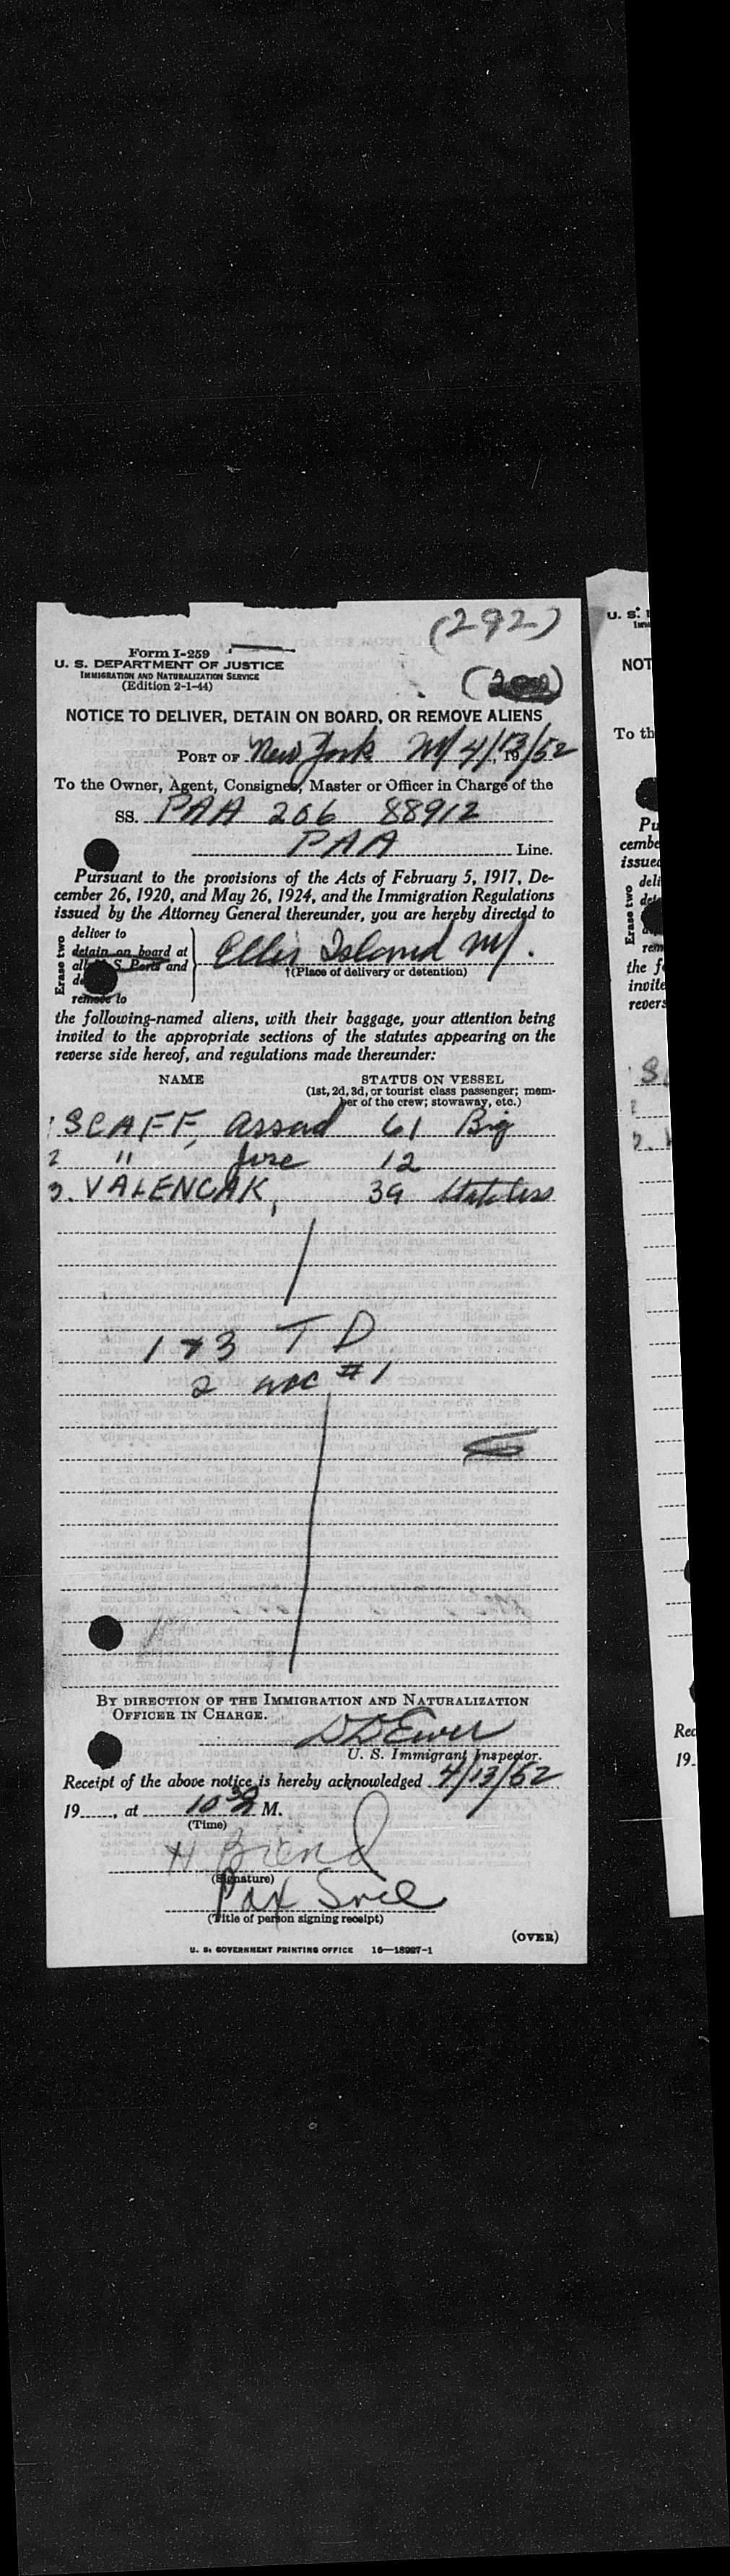 (292)
Form I-259
U. S. DEPARTMENT OF JUSTICE
IMMIGRATION AND NATURALIZATION SERVICE
(Edition 2-1-44)
NOTICE TO DELIVER, DETAIN ON BOARD, OR REMOVE ALIENS
PORT OF New York NY 4/13/52, 19
To the Owner, Agent, Consignee, Master or Officer in Charge of the
SS. PAA 206 88912
PAA Line.
Pursuant to the provisions of the Acts of February 5, 1917, De-
cember 26, 1920, and May 26, 1924, and the Immigration Regulations
issued by the Attorney General thereunder, you are hereby directed to
Erase two
deliver to
detain on board at
all U. S. Ports and
remove to
Ellis Island NY.
†(Place of delivery or detention)
the following-named aliens, with their baggage, your attention being
invited to the appropriate sections of the statutes appearing on the
reverse side hereof, and regulations made thereunder:
NAME STATUS ON VESSEL
(1st, 2d, 3d, or tourist class passenger; mem-
ber of the crew; stowaway, etc.)
1 SCAFF, Assad 61
2 " Jose 12
3. VALENCAK, 39 Stateless
1 + 3 T D
2 acc #1
BY DIRECTION OF THE IMMIGRATION AND NATURALIZATION
OFFICER IN CHARGE.
U. S. Immigrant Inspector.
Receipt of the above notice is hereby acknowledged 4/13/52
19, at 10 M.
(Time)
(Signature)
Pax Svce
(Title of person signing receipt)
(OVER)
U. S. GOVERNMENT PRINTING OFFICE 16—18987-1
U. S.
NOT
To th
Pu
cembe
issued
Erase two
deli
rem
the f
invite
revers
Rec
19